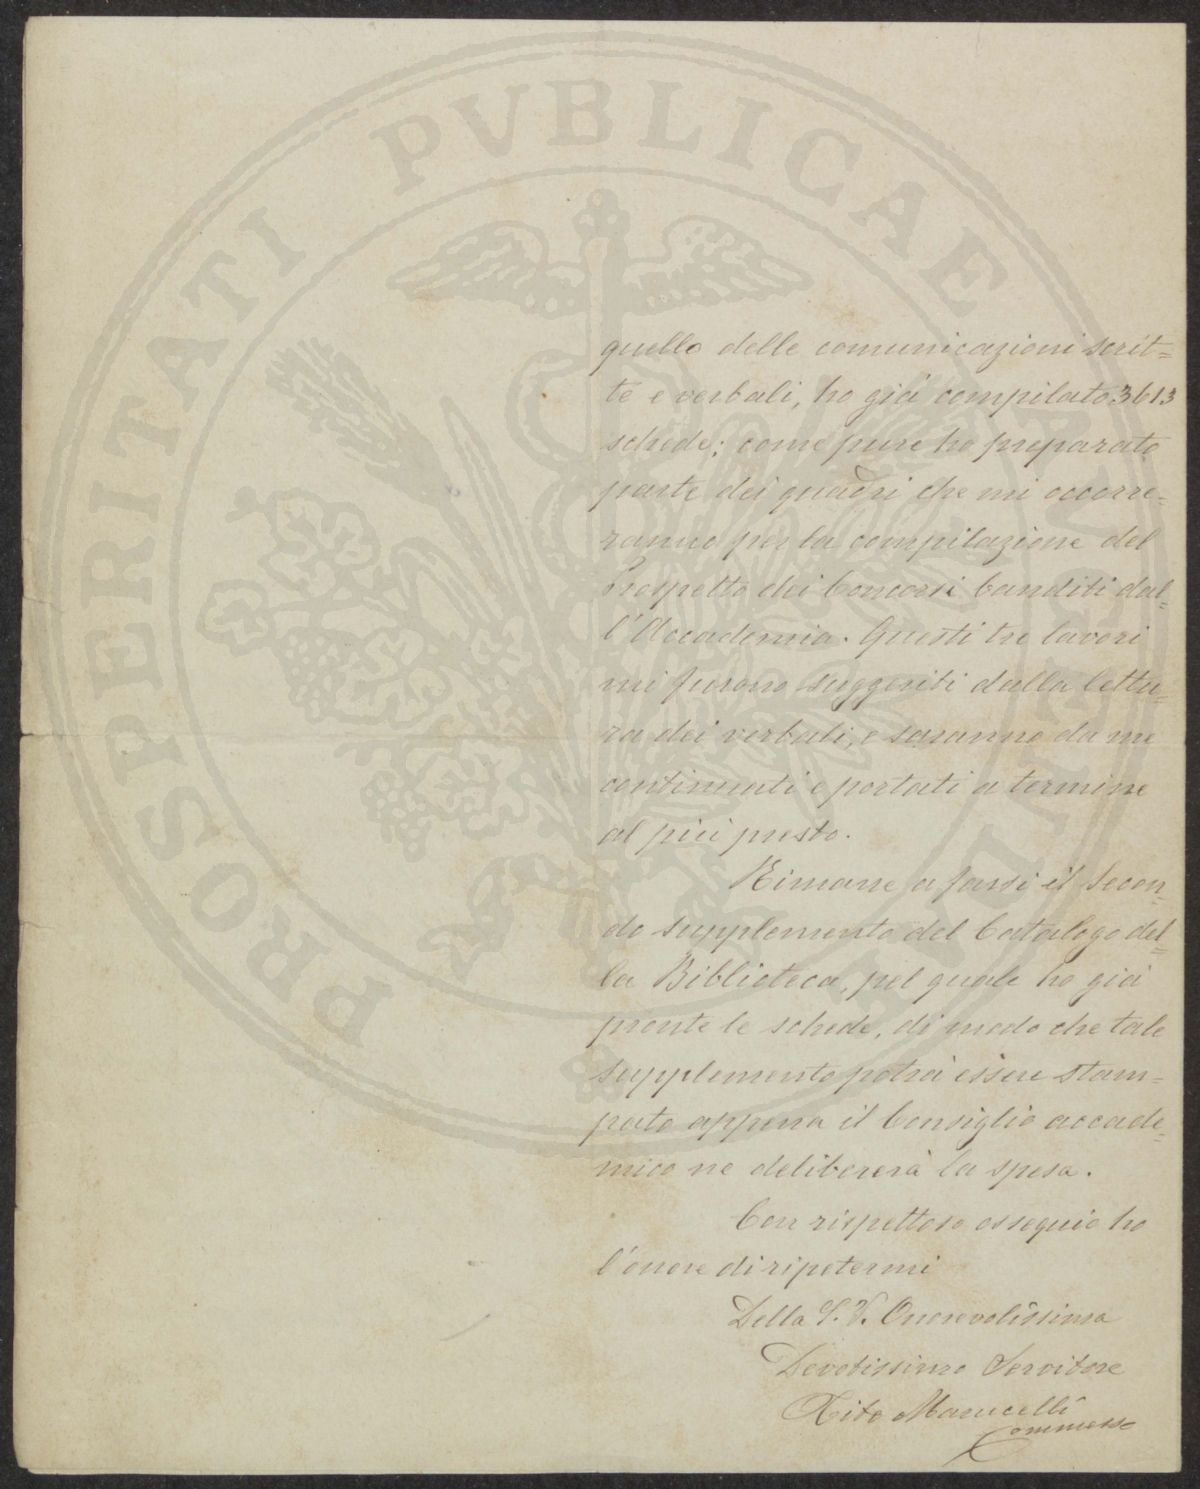 quello delle comunicazioni scrit=
te e verbali, ho già compilato 3613
schede; come pure ho preparato
parte dei quadri che mi occorre=
ranno per la compilazione del
Prospetto dei Concorsi banditi dal=
l'Accademia. Questi tre lavori
mi furono suggeriti dalla lettu=
ra dei verbali, e saranno da me
continuati e portati a termine
al più presto.
Rimane a farsi il Secon=
do supplemento del Catalogo del=
la Biblioteca, pel quale ho già
pronte le schede, di modo che tale
supplemento potrà essere stam=
pato appena il Consiglio accade=
mico ne delibererà la spesa.
Con rispettoso ossequio ho
l'onore di ripetermi
Della S. V. Onorevolissima
Devotissimo Servitore
Tito Marucelli
Commesso
PROSPERITATI PVBLICAE AVGENDAE